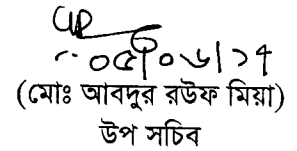 ০৫/০৬/১৭
(মোঃ আবদুর রউফ মিয়া)
উপ সচিব